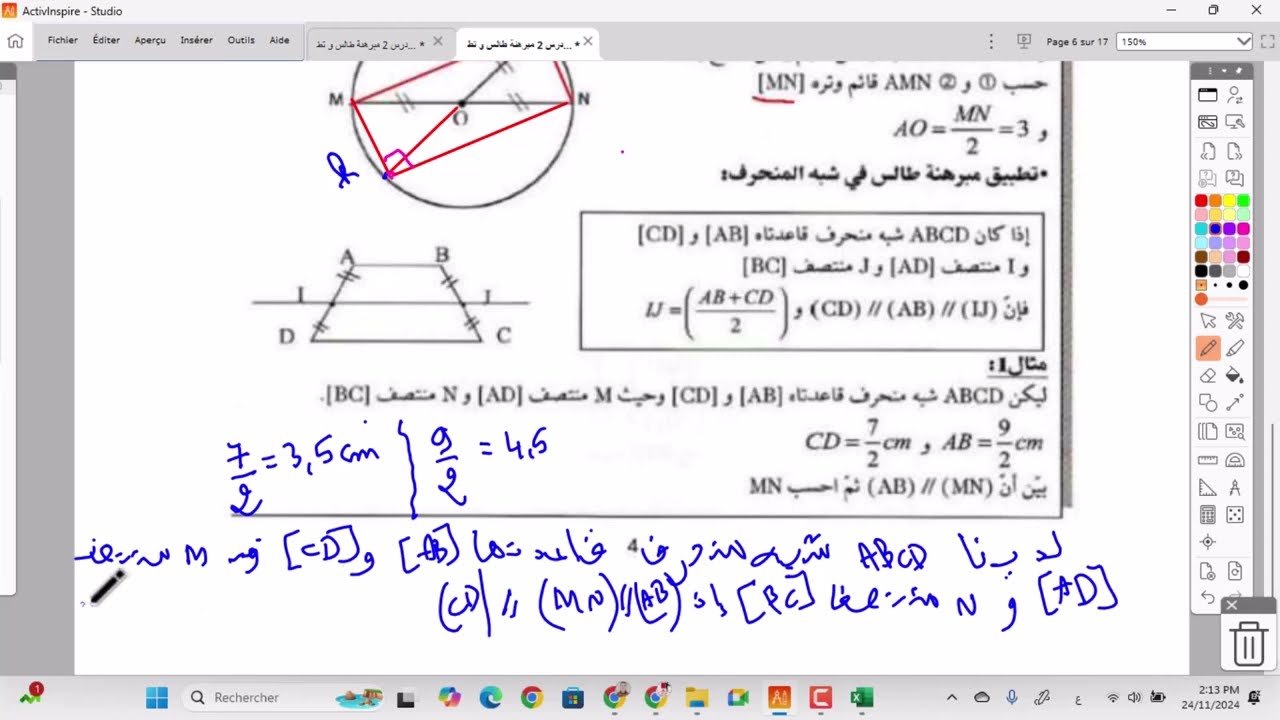 ActivInspire - Studio
Fichier Éditer Aperçu Insérer Outils Aide
* ...درس 2 مبرهنة طالس و تط
* ...درس 2 مبرهنة طالس و تط
Page 6 sur 17
150%
حسب ① و ② AMN قائم وتره [MN]
و AO = MN/2 = 3
•تطبيق مبرهنة طالس في شبه المنحرف:
M N O
إذا كان ABCD شبه منحرف قاعدتاه [AB] و [CD]
و I منتصف [AD] و J منتصف [BC]
فإنّ (IJ) // (AB) // (CD) و IJ = (AB+CD/2)
A B
I J
D C
مثال1:
ليكن ABCD شبه منحرف قاعدتاه [AB] و [CD] وحيث M منتصف [AD] و N منتصف [BC].
AB = 9/2 cm و CD = 7/2 cm
بيّن أنّ (MN) // (AB) ثمّ احسب MN
7/2 = 3,5 cm
9/2 = 4,5
4
لدينا ABCD شبه منحرف قاعدتها [AB] و [CD] M منتصف
[AD] و N منتصف [BC] (AB) // (MN) // (CD)
Rechercher
2:13 PM
24/11/2024
1